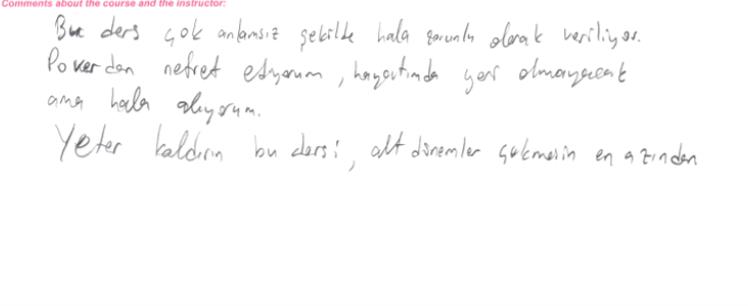 Comments about the course and the instructor:
Bu ders çok anlamsız şekilde hala zorunlu olarak veriliyor.
Power dan nefret ediyorum, hayatımda yeri olmayacak
ama hala alıyorum.
Yeter kaldırın bu dersi, alt dönemler çekmesin en azından